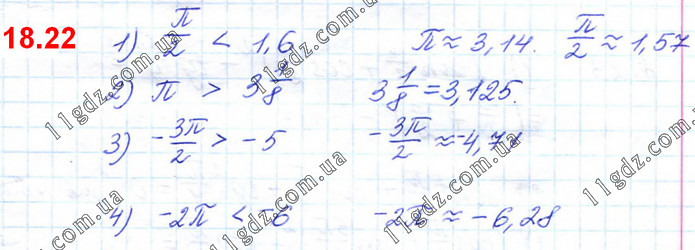 18.22 1) π/2 < 1,6 π ≈ 3,14. π/2 ≈ 1,57
2) π > 3 1/8 3 1/8 = 3,125.
3) -3π/2 > -5 -3π/2 ≈ -4,71
4) -2π < -6 -2π ≈ -6,28
11gdz.com.ua
11gdz.com.ua
11gdz.com.ua
11gdz.com.ua
11gdz.com.ua